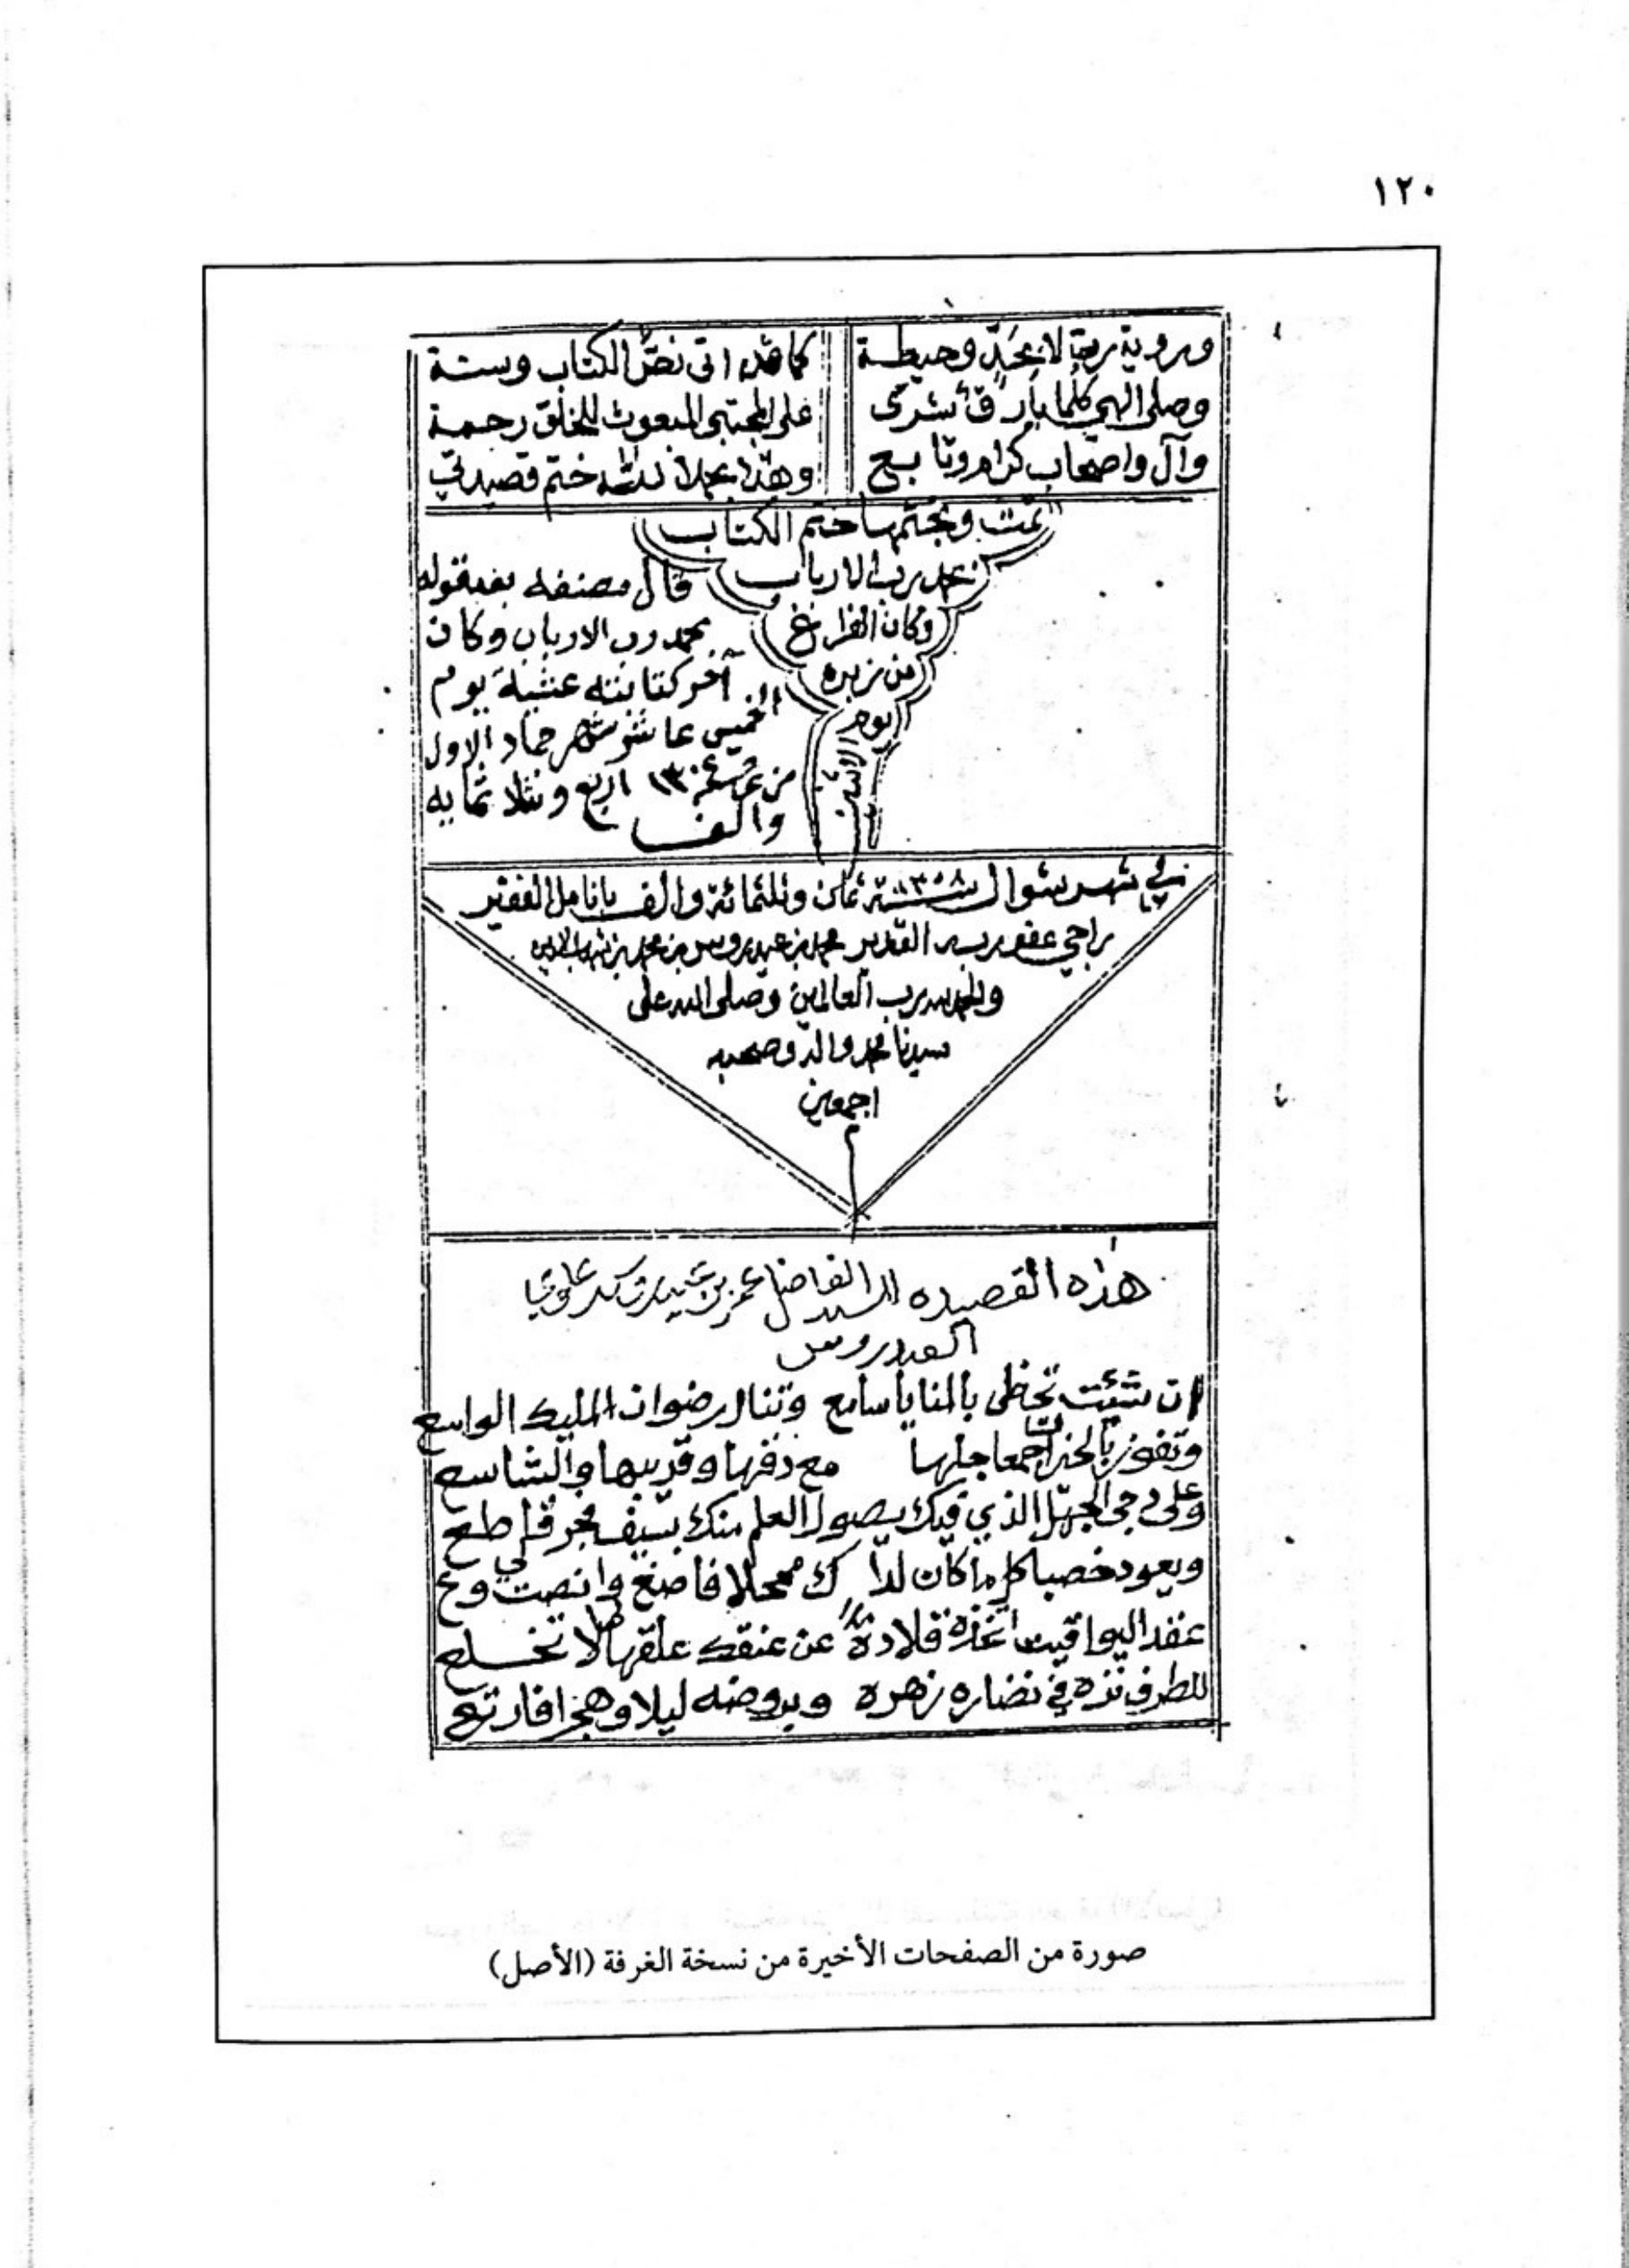 ١٢٠
وروية ربي لا بحد وحيطة كما قد اتى نص الكتاب وسنة
وصلى الهي كلما بارق شرى على المجتبى المبعوث للخلق رحمة
وآل واصحاب كرام وتابع وهذا بحمد الله ختم قصيدتي
تمت وبختمها ختم الكتاب
بحمد رب الارباب
وكان الفراغ
من زبره
يوم
الاثنين
قال مصنفه بفيه قوله
بحمد رب الارباب وكان
آخر كتابته عشية يوم
الخميس عاشر شهر جماد الاول
من ١٣٠٤ اربع وثلاثمايه
والف
في شهر شوال سنة ١٣٠٨ ثمان وثلثمائة والف بانامل الفقير
راجي عفو ربه القدير محمد بن عيدروس بن محمد بن شهاب الدين
والحمد لله رب العالمين وصلى الله على
سيدنا محمد واله وصحبه
اجمعين
هذه القصيده للسيد الفاضل عمر بن
العيدروس
ان شئت تحظى بالمنا يا سامع وتنال رضوان المليك الواسع
وتفوز بالخيرات اجمعا جلها مع دقها وقريبها والشاسع
وعلى دجى الجهل الذي فيك يصول العلم منك بسيف فجر قاطع
ويعود خصبا كل ما كان لدا ك ممحلا فاصغ وانصت لي وع
عقد اليواقيت اتخذه قلادة عن عنقك علقها لا تخلع
للطرف نزه في نضاره زهره وبروضه ليلا وهجرا فارتع
صورة من الصفحات الأخيرة من نسخة الغرفة (الأصل)